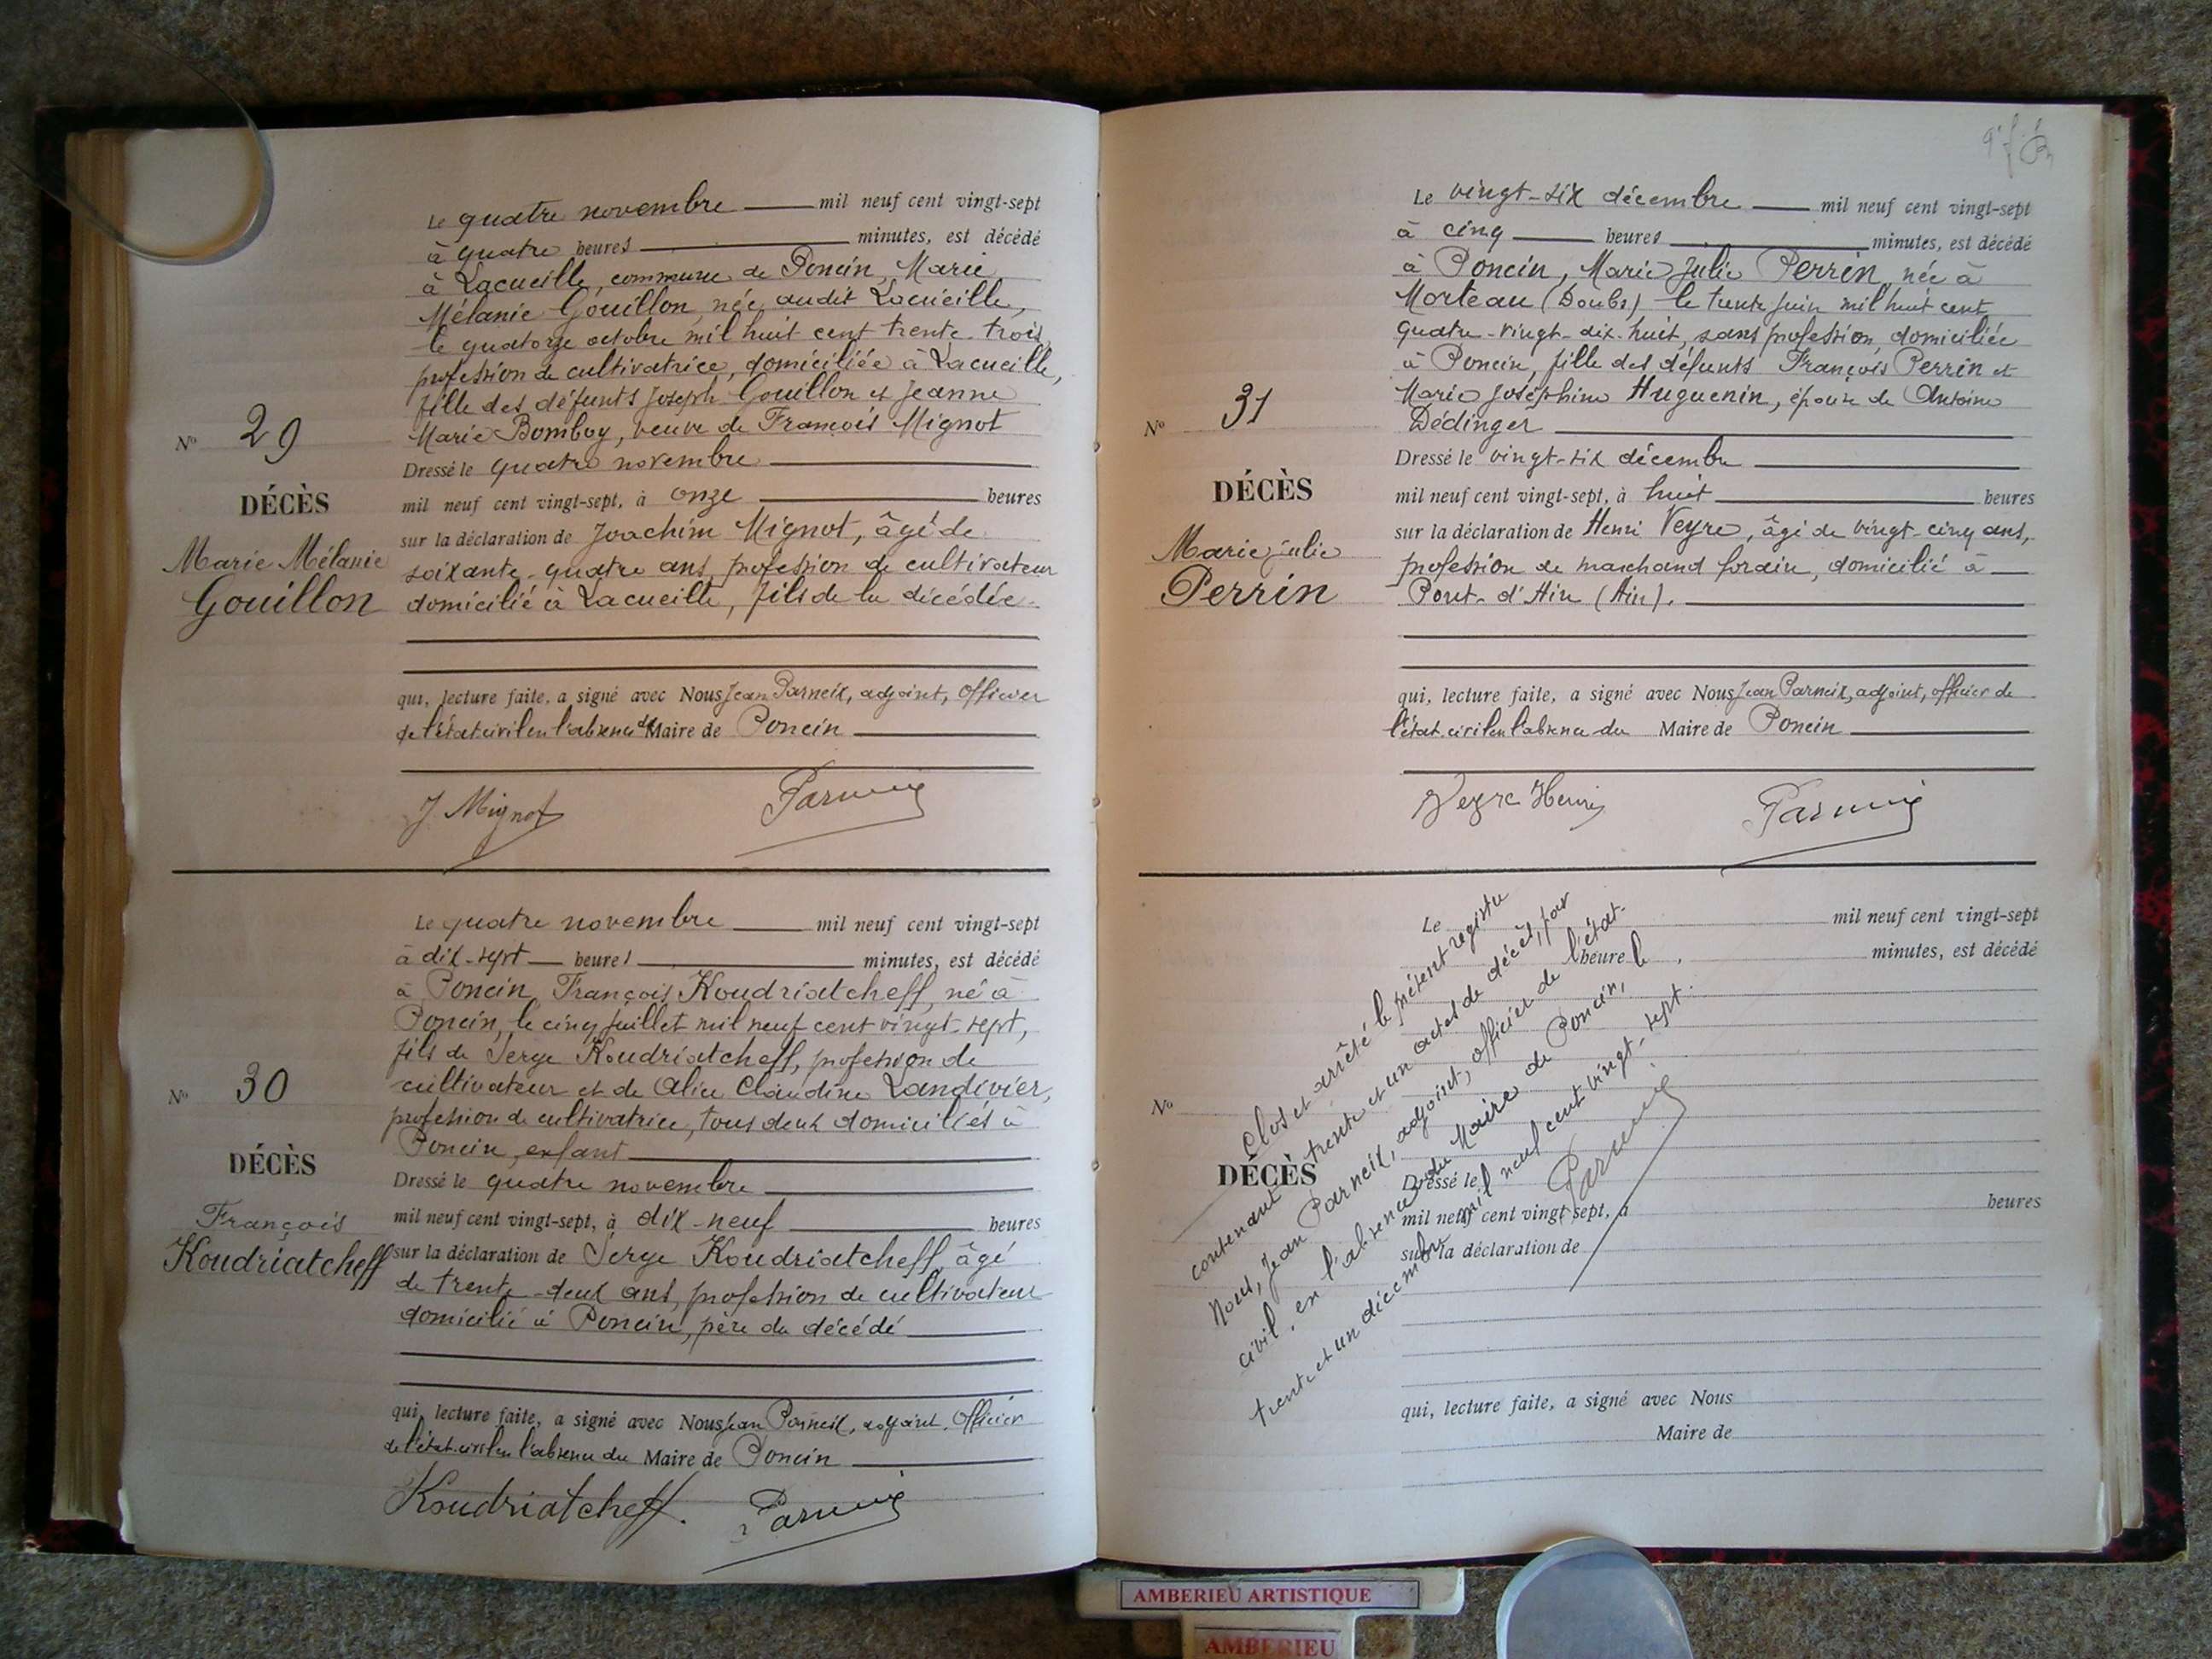 Le quatre novembre mil neuf cent vingt-sept
à quatre heures minutes, est décédé
à Lacueille, commune de Poncin, Marie
Mélanie Gouillon, née audit Lacueille,
le quatorze octobre mil huit cent trente-trois,
profession de cultivatrice, domiciliée à Lacueille,
fille des défunts Joseph Gouillon et Jeanne
Marie Bomboy, veuve de François Mignot
Nº 29
Dressé le quatre novembre
DÉCÈS
mil neuf cent vingt-sept, à onze heures
Marie Mélanie
Gouillon
sur la déclaration de Joachim Mignot, âgé de
soixante-quatre ans, profession de cultivateur
domicilié à Lacueille, fils de la décédée
qui, lecture faite, a signé avec Nous Jean Parneix, adjoint, officier
de l'état civil en l'absence du Maire de Poncin
J Mignot Parneix
Le quatre novembre mil neuf cent vingt-sept
à dix-sept heures minutes, est décédé
à Poncin, François Koudriatcheff, né à
Poncin, le cinq juillet mil neuf cent vingt-sept,
fils de Serge Koudriatcheff, profession de
cultivateur et de Alice Claudine Landivier,
profession de cultivatrice, tous deux domiciliés à
Poncin, enfant
Nº 30
DÉCÈS
François
Koudriatcheff
Dressé le quatre novembre
mil neuf cent vingt-sept, à dix-neuf heures
sur la déclaration de Serge Koudriatcheff, âgé
de trente-deux ans, profession de cultivateur
domicilié à Poncin, père du décédé
qui, lecture faite, a signé avec Nous Jean Parneix, adjoint, officier
de l'état civil en l'absence du Maire de Poncin
Koudriatcheff. Parneix
Le vingt-six décembre mil neuf cent vingt-sept
à cinq heures minutes, est décédé
à Poncin, Marie Julie Perrin, née à
Morteau (Doubs) le trente juin mil huit cent
quatre-vingt-dix-huit, sans profession, domiciliée
à Poncin, fille des défunts François Perrin et
Marie Joséphine Huguenin, épouse de Antoine
Dédinger
Nº 31
DÉCÈS
Marie Julie
Perrin
Dressé le vingt-six décembre
mil neuf cent vingt-sept, à huit heures
sur la déclaration de Henri Veyre, âgé de vingt-cinq ans,
profession de marchand forain, domicilié à
Pont-d'Ain (Ain).
qui, lecture faite, a signé avec Nous Jean Parneix, adjoint, officier de
l'état civil en l'absence du Maire de Poncin
Veyre Henri Parneix
Le mil neuf cent vingt-sept
heure minutes, est décédé
Nº
DÉCÈS
Dressé le
mil neuf cent vingt-sept, à heures
sur la déclaration de
qui, lecture faite, a signé avec Nous
Maire de
Clos et arrêté le présent registre
contenant trente et un actes de décès, par
Nous, Jean Parneix, adjoint, officier de l'état-
civil, en l'absence du Maire de Poncin, le
trente et un décembre mil neuf cent vingt-sept.
Parneix
AMBERIEU ARTISTIQUE
AMBERIEU